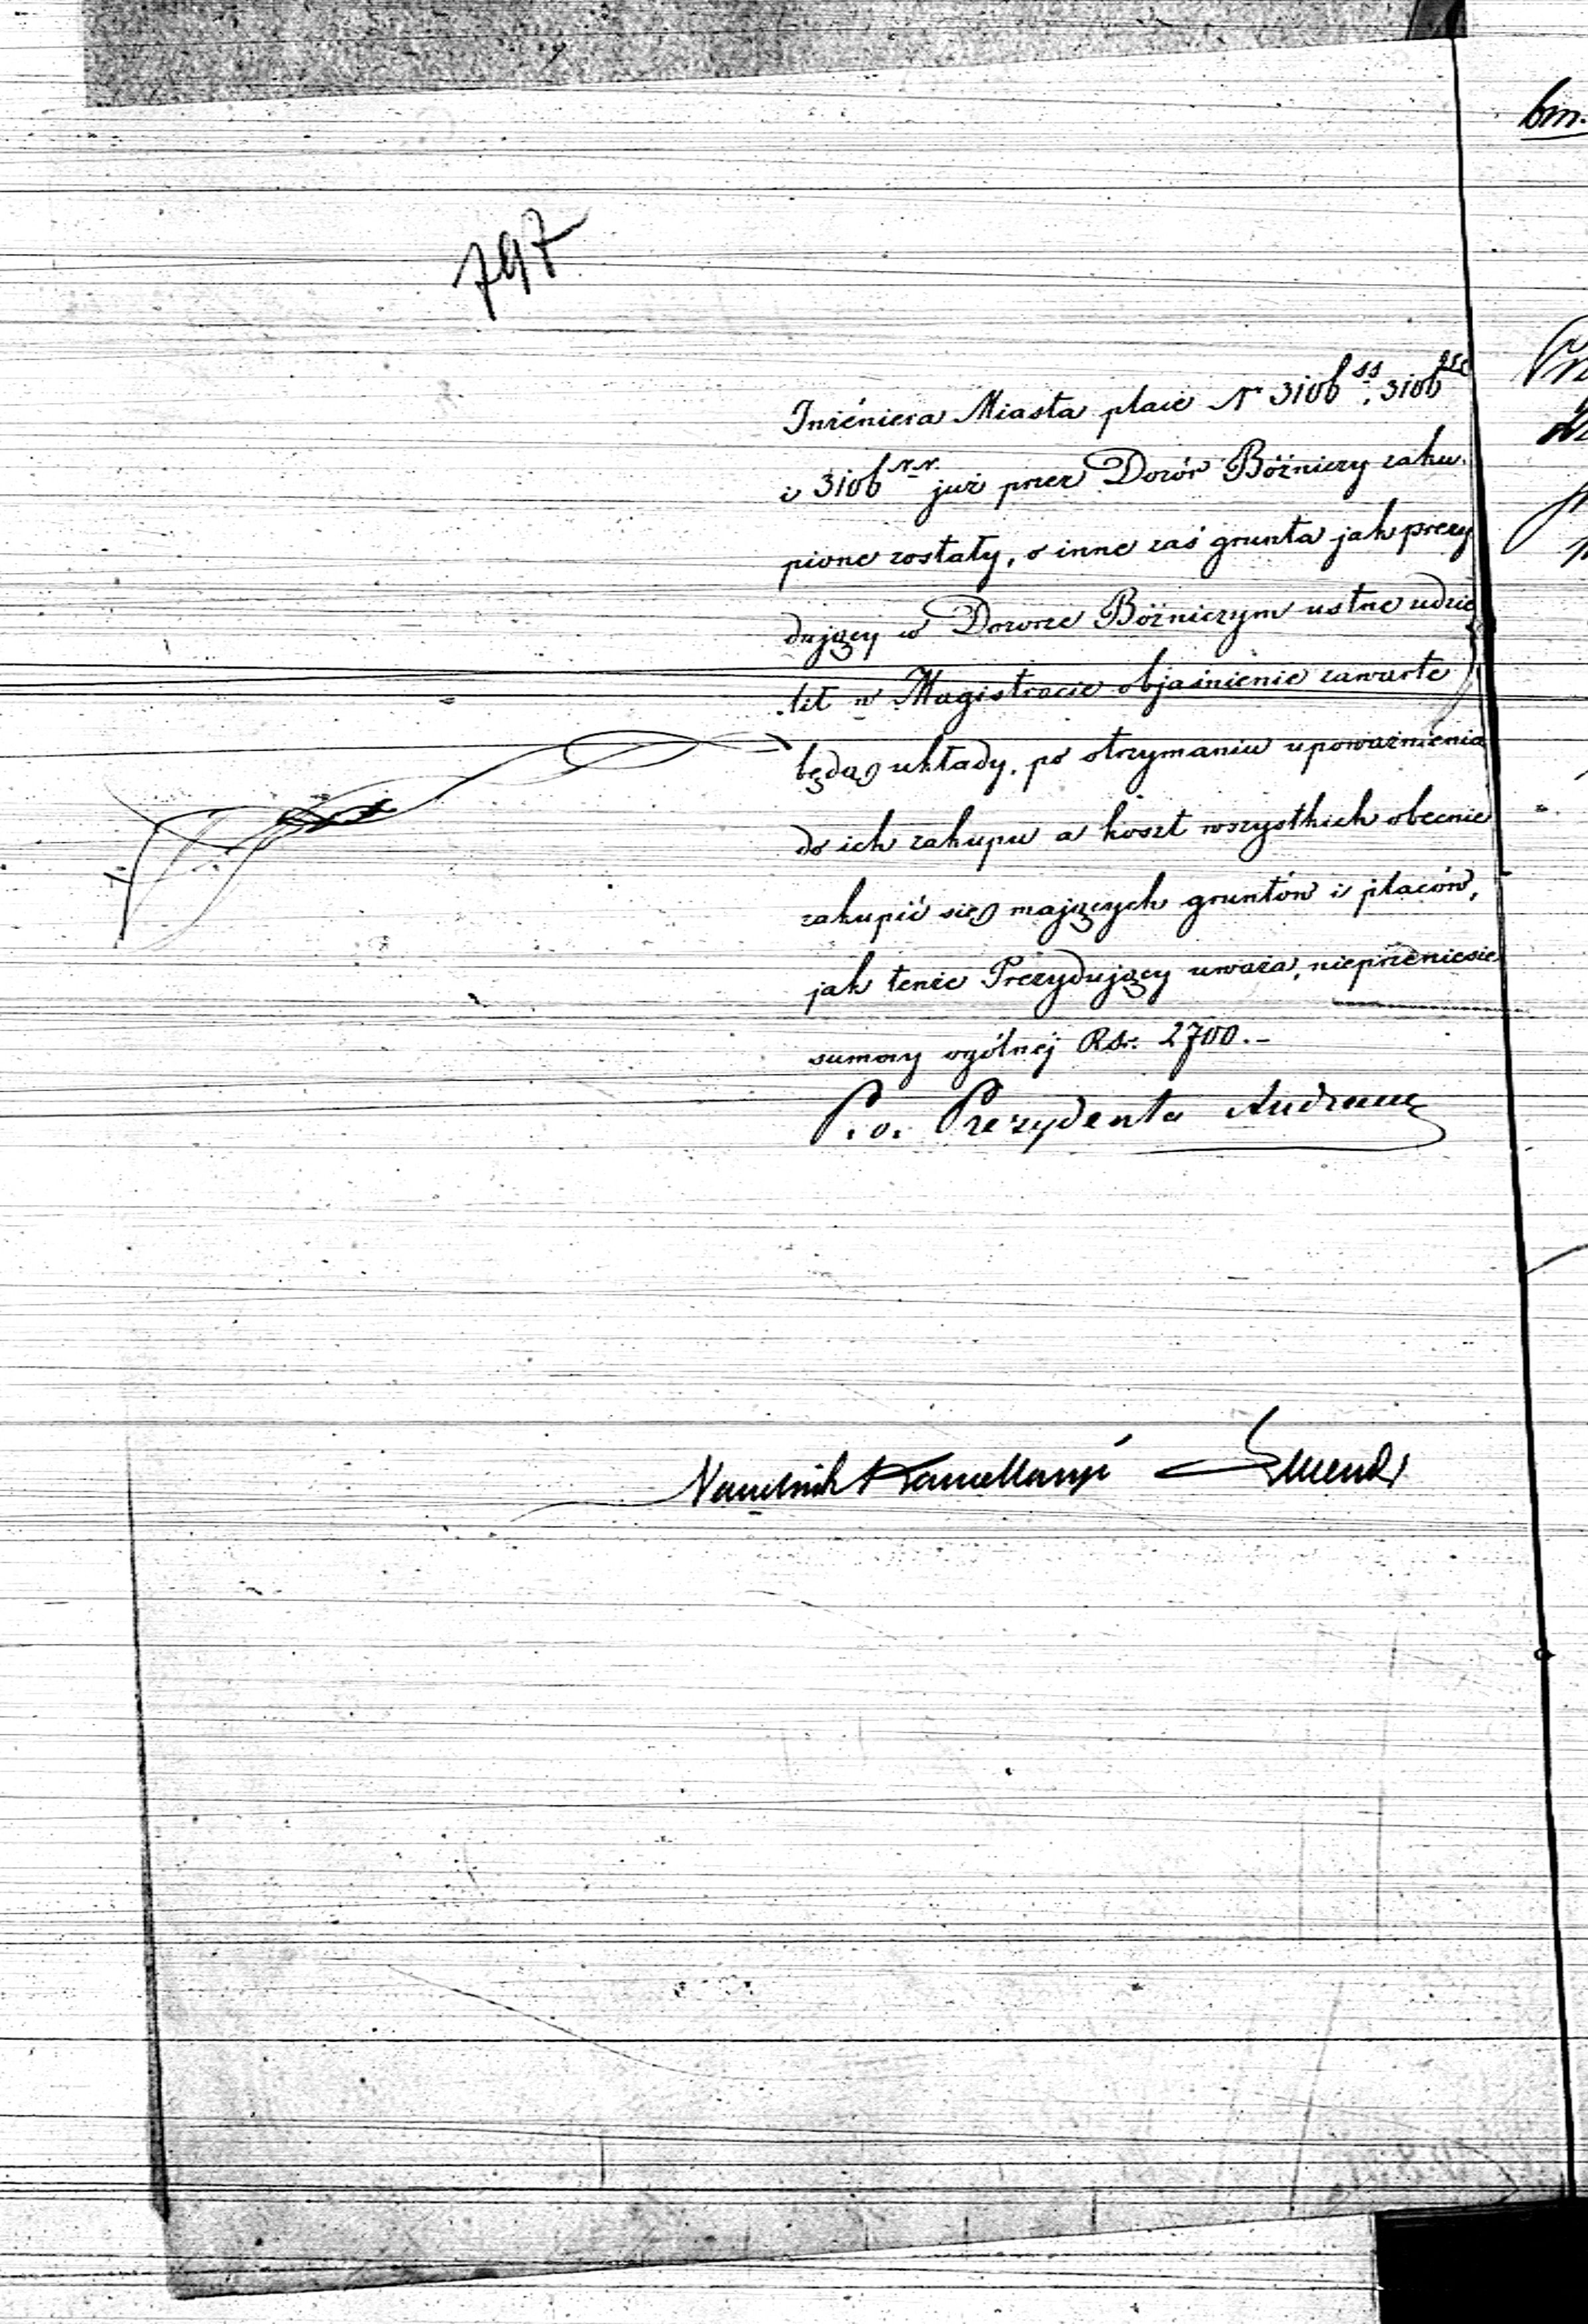 797
Inżéniera Miasta place Nr 3106 ss, 3106
i 3106 NN. już przez Dozór Bóżniczy zaku-
pione zostały, o inne zaś grunta jak prezy
dujący w Dozorze Bóżniczym ustne udzie
lił w Magistracie objaśnienie zawarte
będą układy, po otrzymaniu upoważnienia
do ich zakupu a koszt wszystkich obecnie
zakupić się mających gruntów i placów,
jak tenże Prezydujący uważa, nieprzeniesie
summy ogólnej Rsr. 2700.-
P.o. Prezydenta
Naczelnik Kancellaryi
bm.